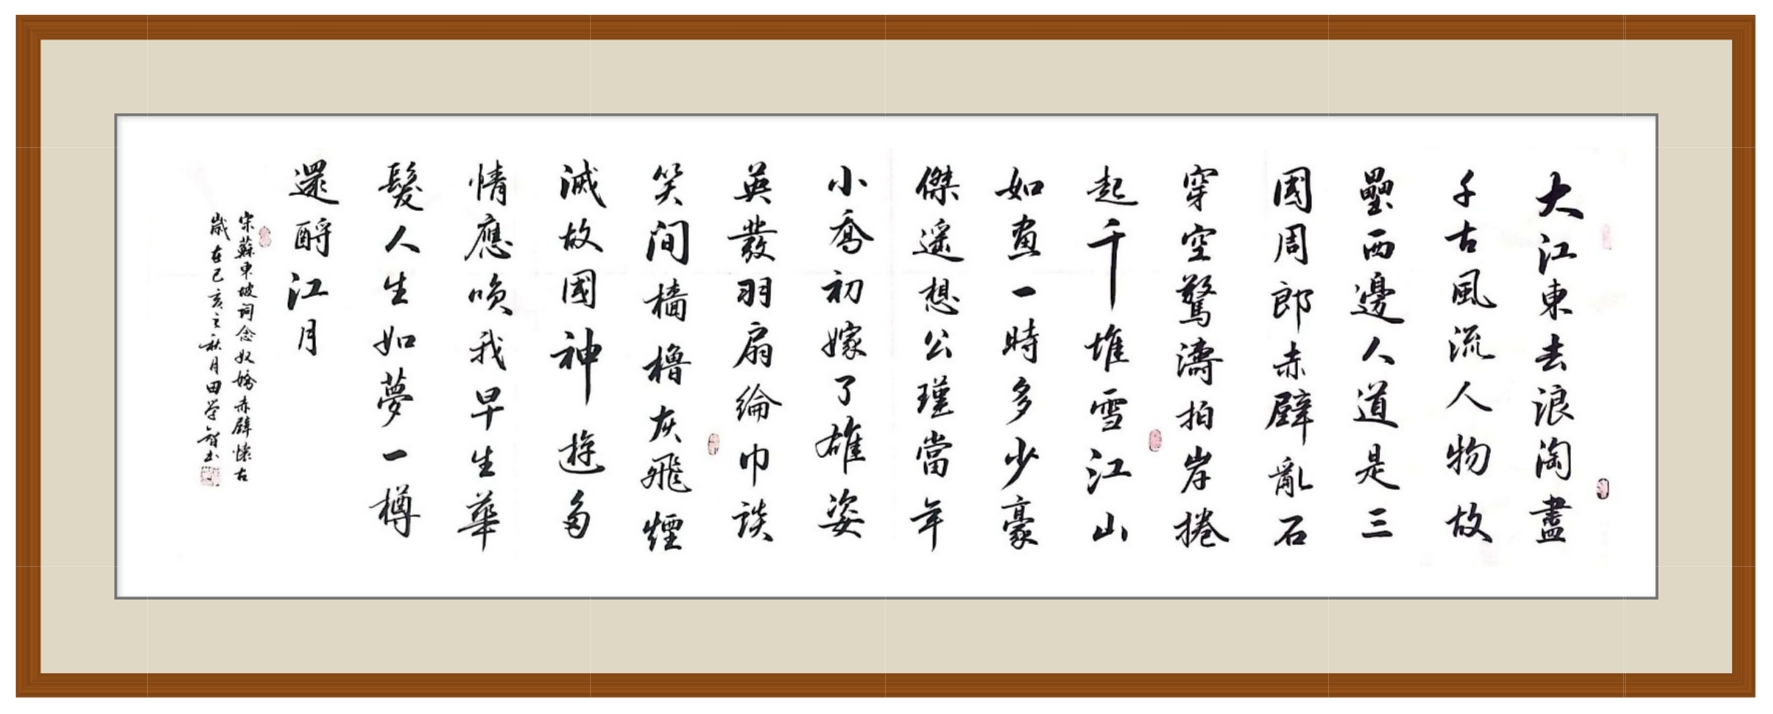 大江東去浪淘盡
千古風流人物故
壘西邊人道是三
國周郎赤壁亂石
穿空驚濤拍岸捲
起千堆雪江山
如畫一時多少豪
傑遥想公瑾當年
小喬初嫁了雄姿
英發羽扇綸巾談
笑间檣櫓灰飛煙
滅故國神遊多
情應喚我早生華
髮人生如夢一樽
還酹江月
宋蘇東坡詞念奴嬌赤壁懷古
歲在己亥之秋月田学智书